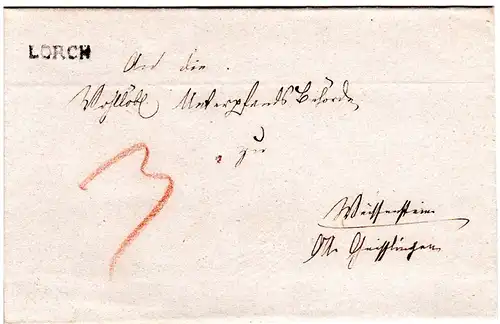 LORCH
An die
Wohllöbl Unterpfands Behörde
zu
3
Weissenstein
OA Geisslingen